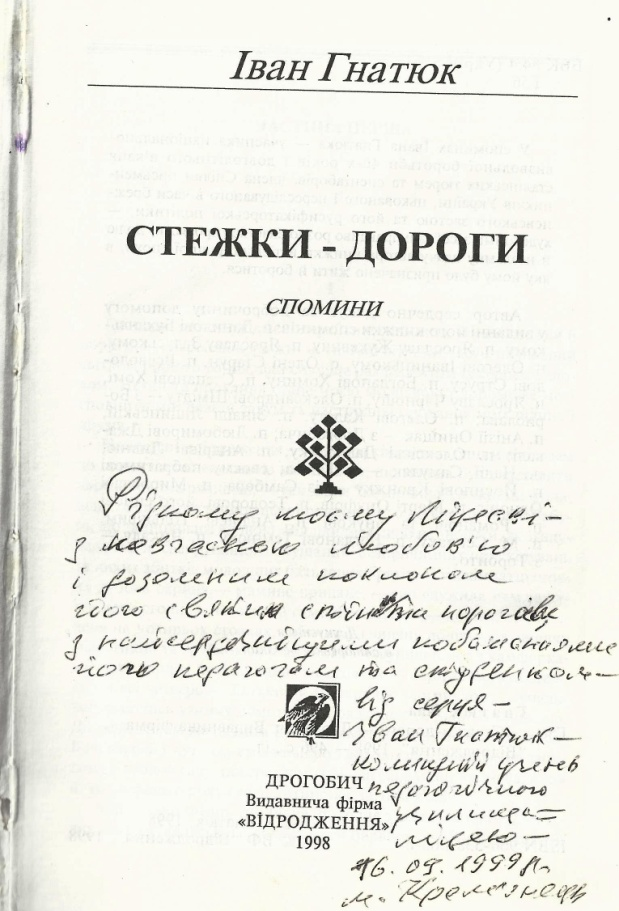 Іван Гнатюк
СТЕЖКИ - ДОРОГИ
СПОМИНИ
Рідному моєму Ліцеєві -
з навчасною любов'ю
і доземним поклоном
його святим стінам та порогам
з найсердечнішими побажаннями
його педагогам та студентам -
від серця -
Іван Гнатюк -
колишній учень
педагогічного
училища -
ліцею -
16.09.1999 р.
м. Кременець
ДРОГОБИЧ
Видавнича фірма
«ВІДРОДЖЕННЯ»
1998